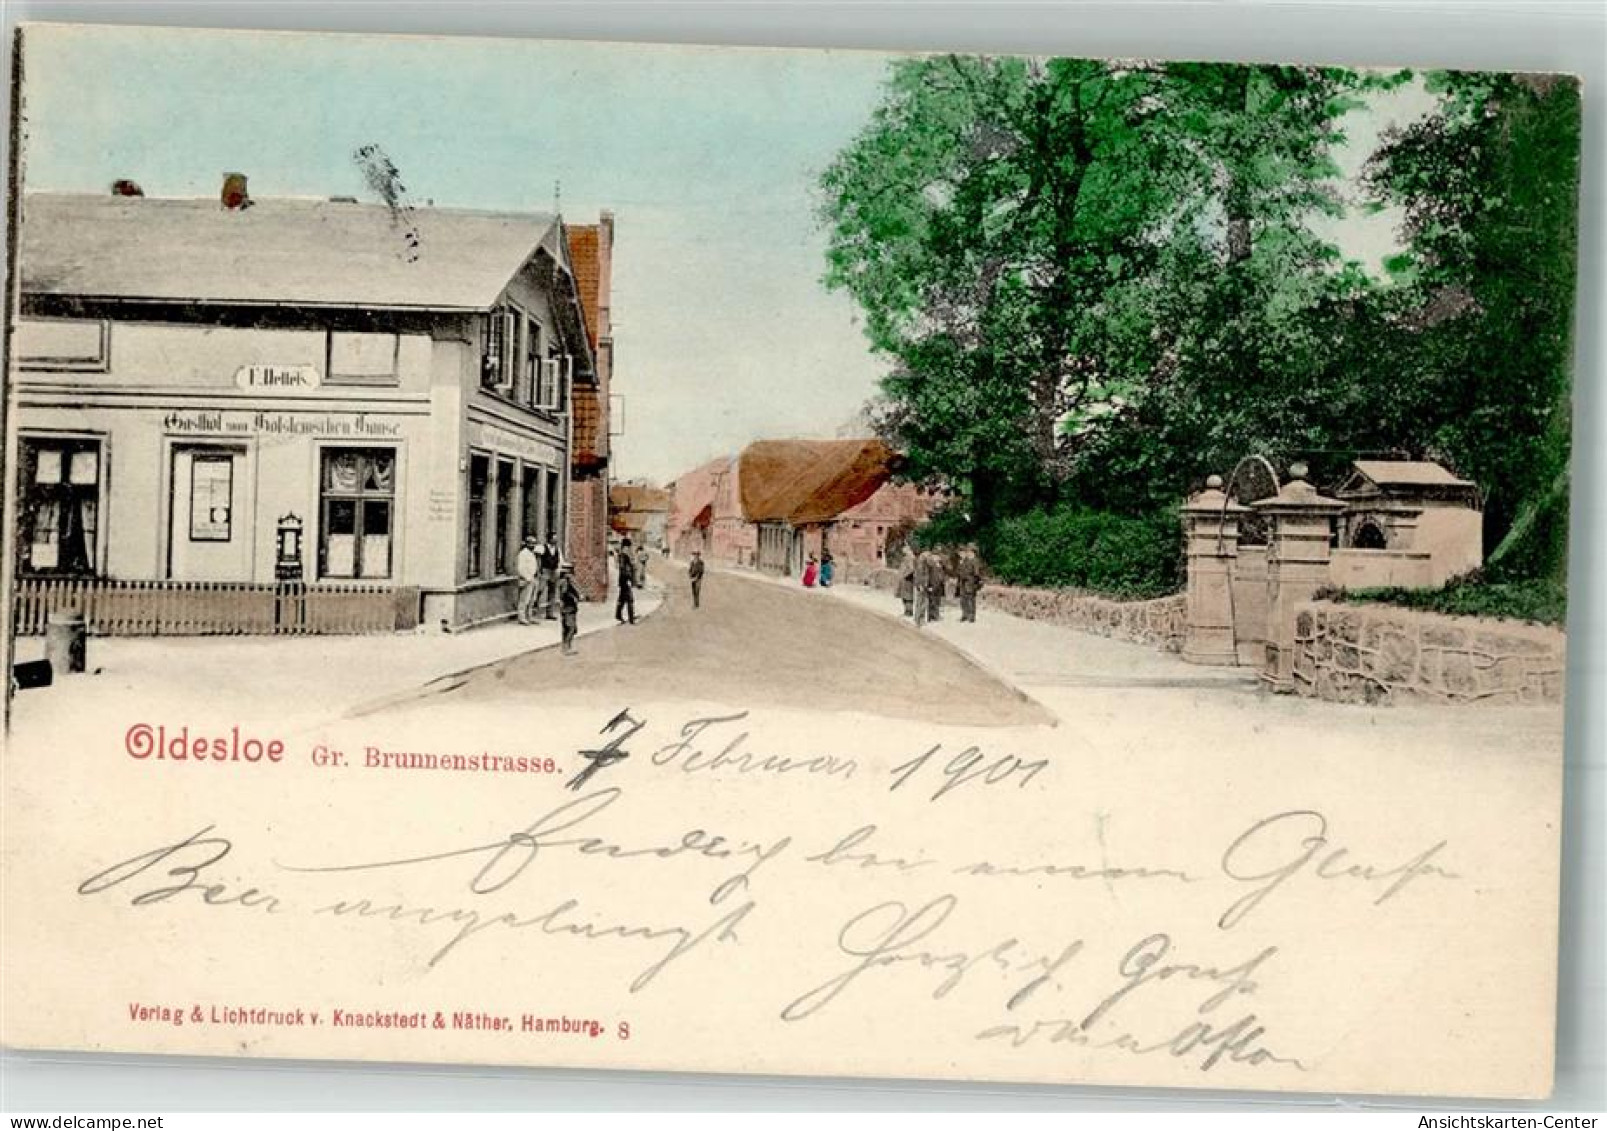 Gasthof zum Holsteinschen Hause
Oldesloe Gr. Brunnenstrasse. 7 Februar 1901
Endlich bei einem Glase
Bier angelangt Herzlich Gruß
Verlag & Lichtdruck v. Knackstedt & Näther, Hamburg. 8
AnsichtsKarten-Center